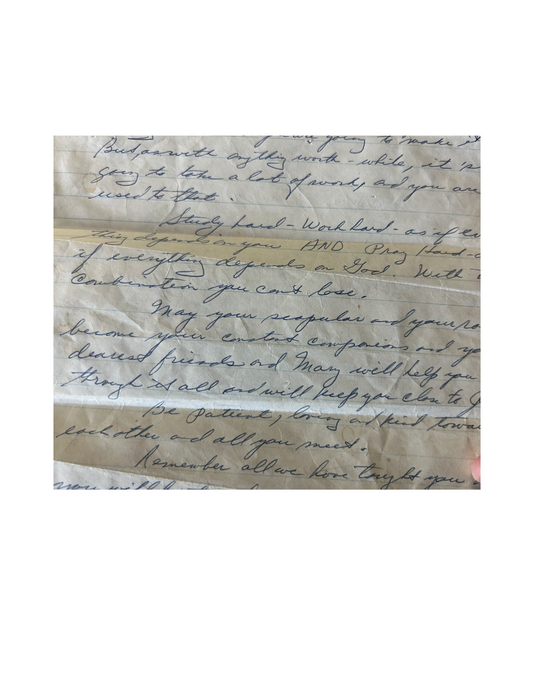 going to make it
But, as with anything worth-while, it's
going to take a lot of work, and you are
used to that.
Study hard - Work hard - as if ev
thing depends on you AND Pray Hard - a
if everything depends on God. With
combination you can't lose.
May your scapular and your ro
become your constant companions and yo
dearest friends and Mary will help you
through it all and will keep you close to
Be patient, loving and kind towa
each other and all you meet.
Remember all we have taught you
you will